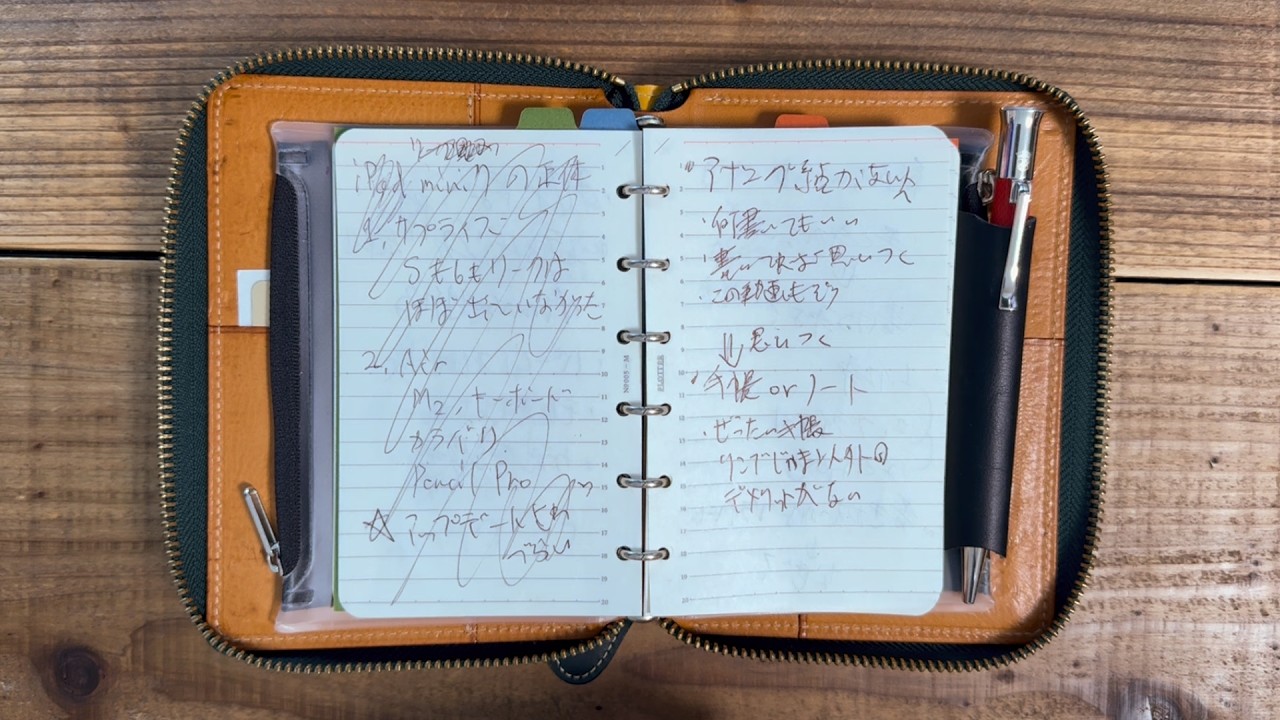 iPad mini 7 の正体
1, サプライズ
5も6もリークは
ほぼ出ていなかった
2, Air
M2, キーボード
カラバリ
Pencil Pro
☆ アップデート
づらい
アナログ
ない人
・何書いてもいい
・書いて
思いつく
・この動画もそう
↓ 思いつく
手帳 or ノート
・ぜったい手帳
リングじゃま以外の
デメリットがない
N0005-M
PLOTTER